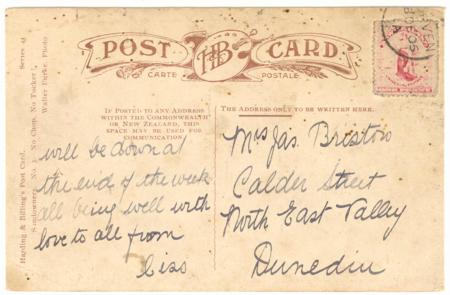 POST CARD
HB
CARTE POSTALE
IF POSTED TO ANY ADDRESS
WITHIN THE COMMONWEALTH
OR NEW ZEALAND, THIS
SPACE MAY BE USED FOR
COMMUNICATION
THE ADDRESS ONLY TO BE WRITTEN HERE.
Harding & Billing's Post Card. Series 9
Sundowners. No Chop, No Tucker.
Walter Parker Photo
will be down at
the end of the week
all being well with
love to all from
Ciss
Mrs Jas. Bristow
Calder Street
North East Valley
Dunedin